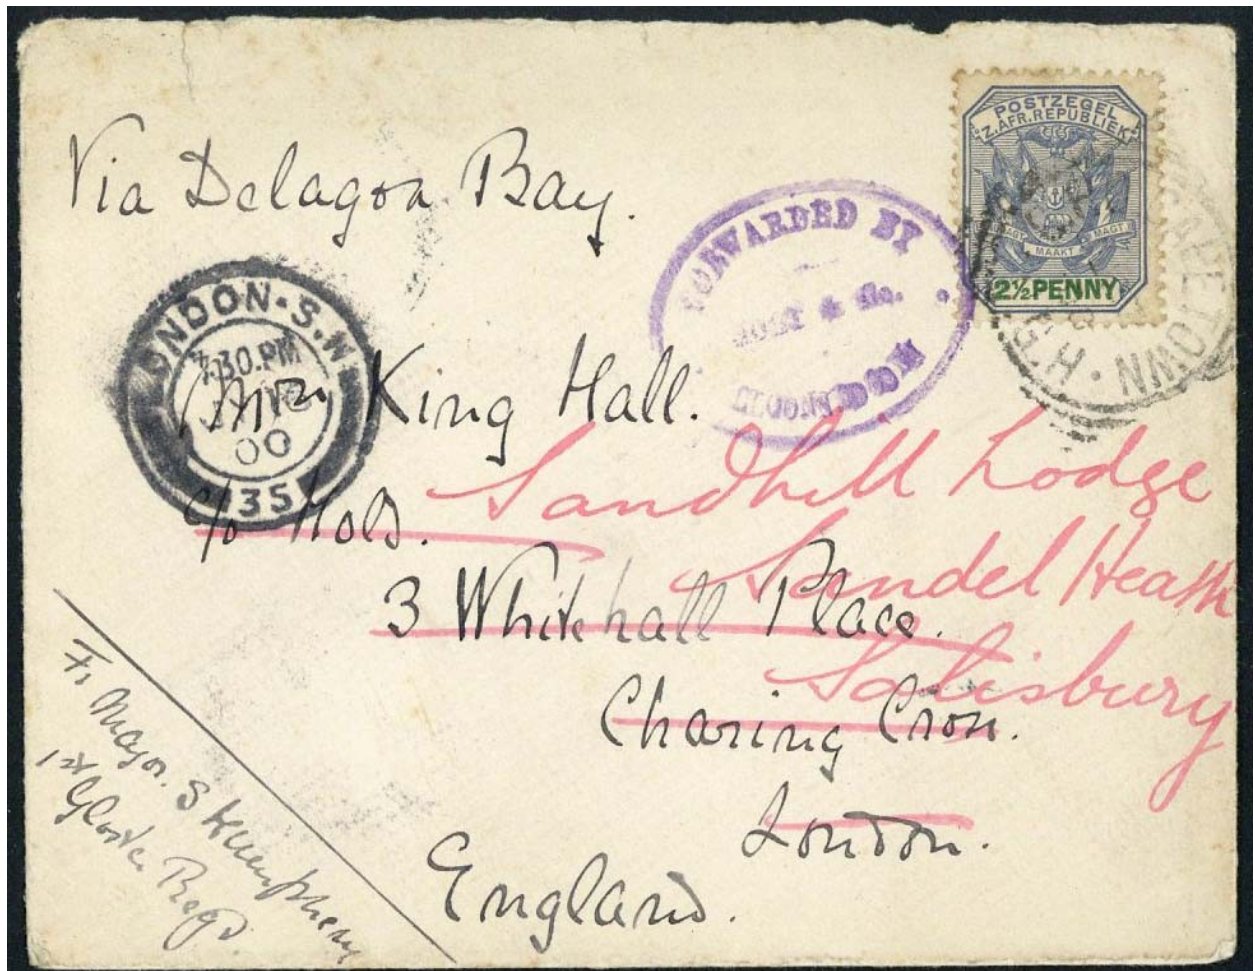 Via Delagoa Bay.
POSTZEGEL
Z. AFR. REPUBLIEK
MAAKT MAGT
2½ PENNY
FORWARDED BY
& Co.
LONDON
TOWN
LONDON·S.W
7.30.PM
00
35
Mrs King Hall.
c/o Holds.
3 Whitehall Place.
Charing Cross.
London.
England.
Sandhill Lodge
Sandel Heath
Salisbury
Fr Major. S Humphery
1st Gloster Regt